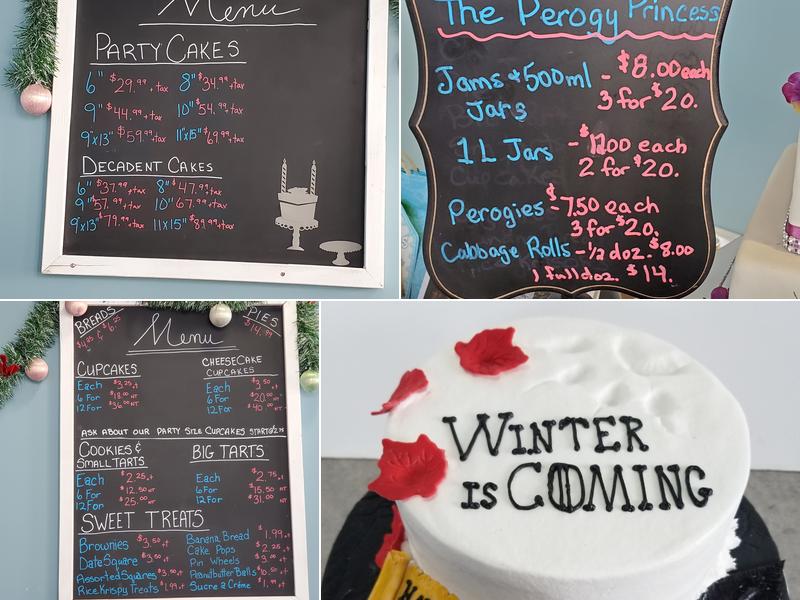 Menu
PARTY CAKES
6" $29.99 +tax 8" $34.99 +tax
9" $44.99 +tax 10" $54.99 +tax
9"x13" $59.99 +tax 11"x15" $69.99 +tax
DECADENT CAKES
6" $37.99 +tax 8" $47.99 +tax
9" $57.99 +tax 10" $67.99 +tax
9"x13" $79.99 +tax 11x15" $89.99 +tax
The Perogy Princess
Jams & 500ml - $8.00 each
Jars 3 for $20.
1 L Jars - $12.00 each
2 for $20.
Perogies - $7.50 each
3 for $20.
Cabbage Rolls - 1/2 doz. $8.00
1 full doz. $14.
BREADS PIES
$14.99
Menu
CUPCAKES
Each $3.25+t
6 For $18.00 NT
12 For $36.00 NT
CHEESECAKE
CUPCAKES
Each $3.50 +t
6 For $20.00 NT
12 For $40.00 NT
ASK ABOUT OUR PARTY SIZE CUPCAKES
COOKIES &
SMALL TARTS
Each $2.25+t
6 For $12.50 NT
12 For $25.00 NT
BIG TARTS
Each $2.75+t
6 For $15.50 NT
12 For $31.00 NT
SWEET TREATS
Brownies $3.50+t
Date Square $3.50+t
Assorted Squares $3.50+t
Rice Krispy Treats $1.99+t
Banana Bread $1.99+t
Cake Pops $2.25+t
Pin Wheels $3.
Peanut butter Balls
Sucre à Crème $1.99+t
WINTER
is COMING